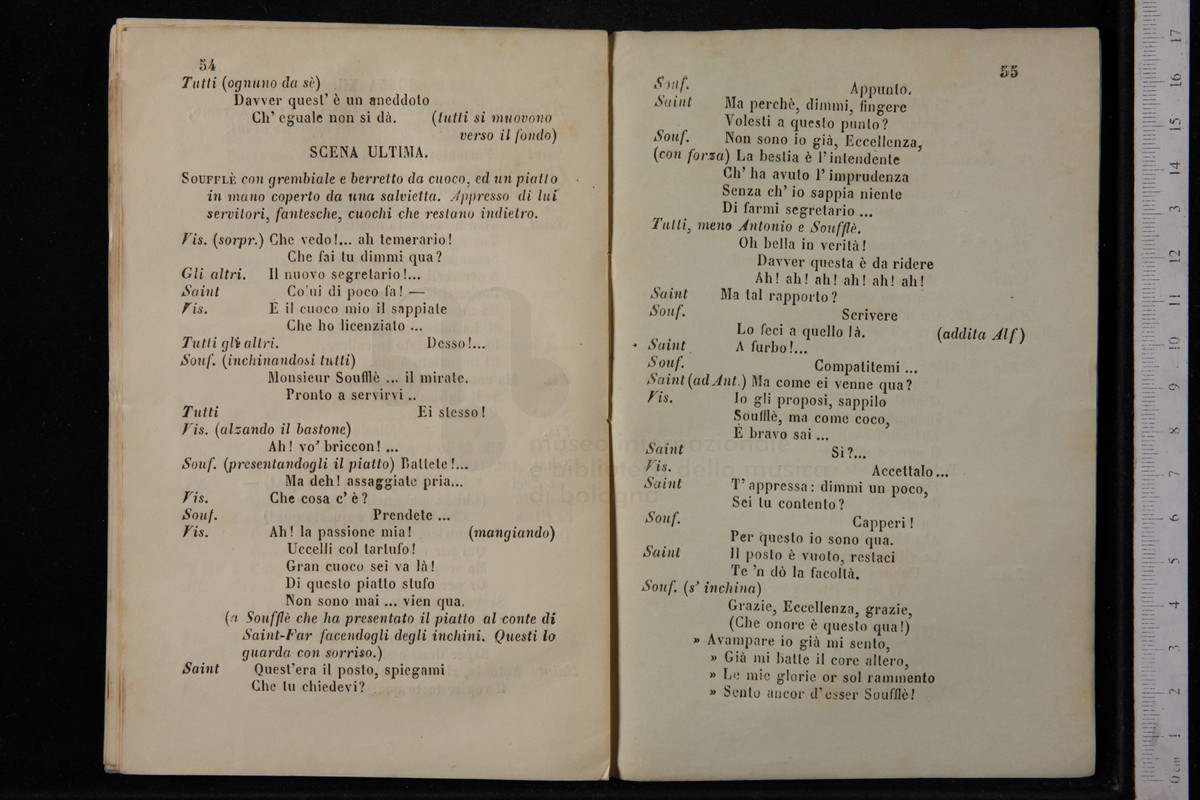 54
Tutti (ognuno da sè)
Davver quest' è un aneddoto
Ch' eguale non si dà. (tutti si muovono
verso il fondo)
SCENA ULTIMA.
SOUFFLÈ con grembiale e berretto da cuoco, ed un piatto
in mano coperto da una salvietta. Appresso di lui
servitori, fantesche, cuochi che restano indietro.
Vis. (sorpr.) Che vedo!... ah temerario!
Che fai tu dimmi qua?
Gli altri. Il nuovo segretario!...
Saint Colui di poco fa! —
Vis. È il cuoco mio il sappiate
Che ho licenziato ...
Tutti gli altri. Desso!...
Souf. (inchinandosi tutti)
Monsieur Soufflè ... il mirate.
Pronto a servirvi ..
Tutti Ei stesso!
Vis. (alzando il bastone)
Ah! vo' briccon! ...
Souf. (presentandogli il piatto) Battete!...
Ma deh! assaggiate pria...
Vis. Che cosa c' è?
Souf. Prendete ...
Vis. Ah! la passione mia! (mangiando)
Uccelli col tartufo!
Gran cuoco sei va là!
Di questo piatto stufo
Non sono mai ... vien qua.
(a Soufflè che ha presentato il piatto al conte di
Saint-Far facendogli degli inchini. Questi lo
guarda con sorriso.)
Saint Quest'era il posto, spiegami
Che tu chiedevi?
55
Souf. Appunto.
Saint Ma perchè, dimmi, fingere
Volesti a questo punto?
Souf. Non sono io già, Eccellenza,
(con forza) La bestia è l'intendente
Ch' ha avuto l' imprudenza
Senza ch' io sappia niente
Di farmi segretario ...
Tutti, meno Antonio e Soufflè.
Oh bella in verità!
Davver questa è da ridere
Ah! ah! ah! ah! ah! ah!
Saint Ma tal rapporto?
Souf. Scrivere
Lo feci a quello là. (addita Alf)
Saint A furbo!...
Souf. Compatitemi ...
Saint (ad Ant.) Ma come ei venne qua?
Vis. Io gli proposi, sappilo
Soufflè, ma come coco,
È bravo sai ...
Saint Sì?...
Vis. Accettalo...
Saint T' appressa: dimmi un poco,
Sei tu contento?
Souf. Capperi!
Per questo io sono qua.
Saint Il posto è vuoto, restaci
Te 'n dò la facoltà.
Souf. (s' inchina)
Grazie, Eccellenza, grazie,
(Che onore è questo qua!)
» Avampare io già mi sento,
» Già mi batte il core altero,
» Le mie glorie or sol rammento
» Sento ancor d'esser Soufflè!
museo internazionale
e biblioteca della musica
di bologna
0 cm 1 2 3 4 5 6 7 8 9 10 11 12 13 14 15 16 17